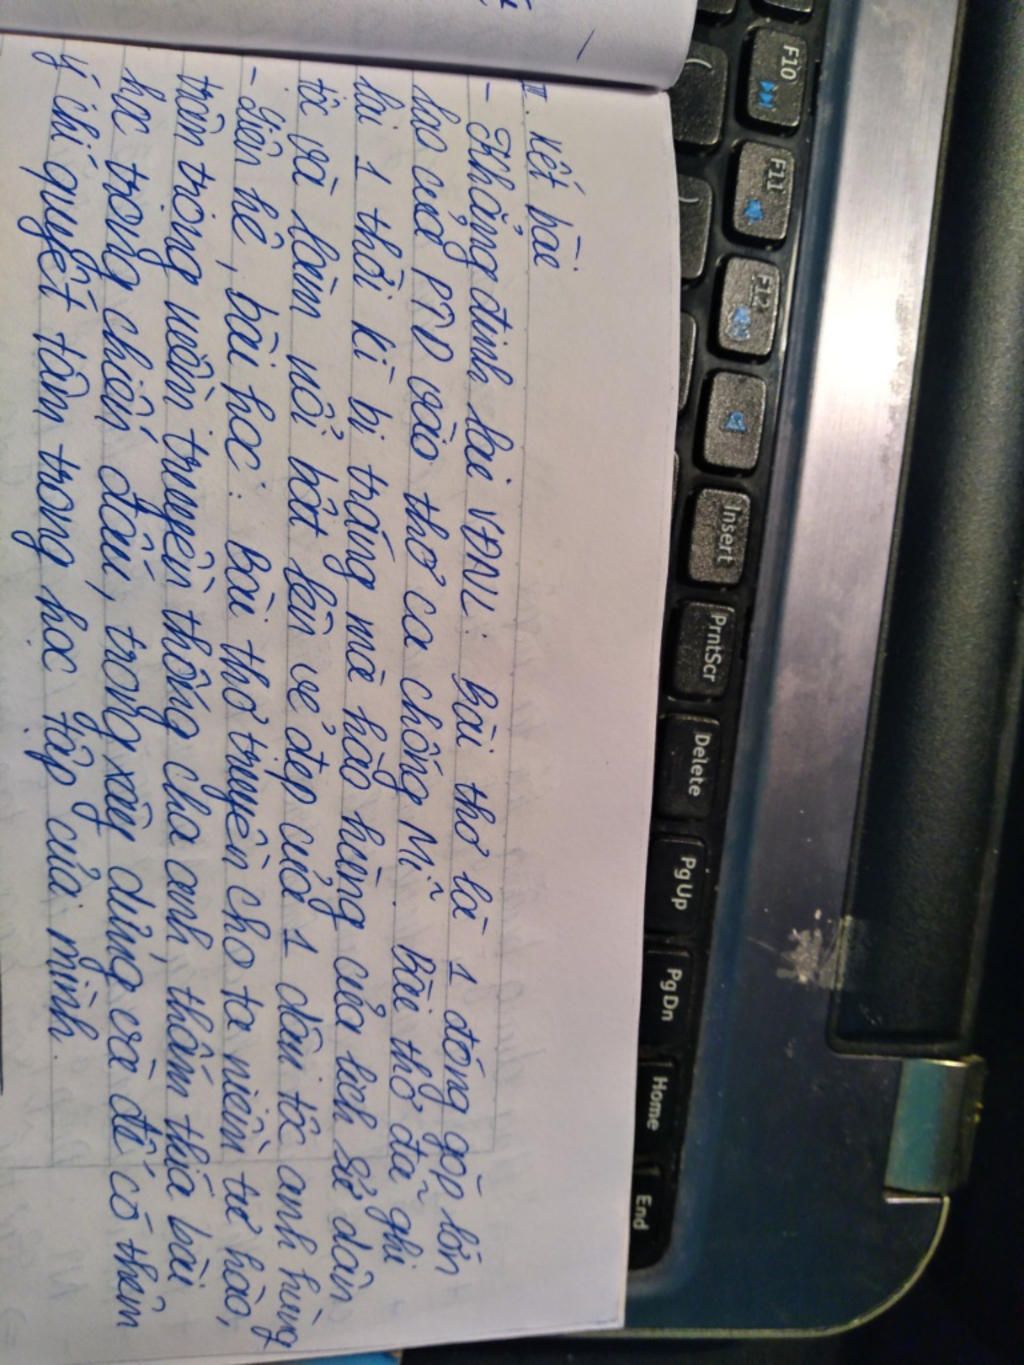 III. Kết bài
- Khẳng định lại VĐNL: Bài thơ là 1 đóng góp lớn
lao của PTD vào thơ ca chống Mĩ. Bài thơ đã ghi
lại 1 thời kì bi tráng mà hào hùng của lịch sử dân
tộc và làm nổi bật lên vẻ đẹp của 1 dân tộc anh hùng
- Liên hệ, bài học: Bài thơ truyền cho ta niềm tự hào,
trân trọng nguồn truyền thống cha anh, thấm thía bài
học trong chiến đấu, trong xây dựng và để có thêm
ý chí quyết tâm trong học tập của mình.
F10
F11
F12
Insert
PrntScr
Delete
PgUp
PgDn
Home
End